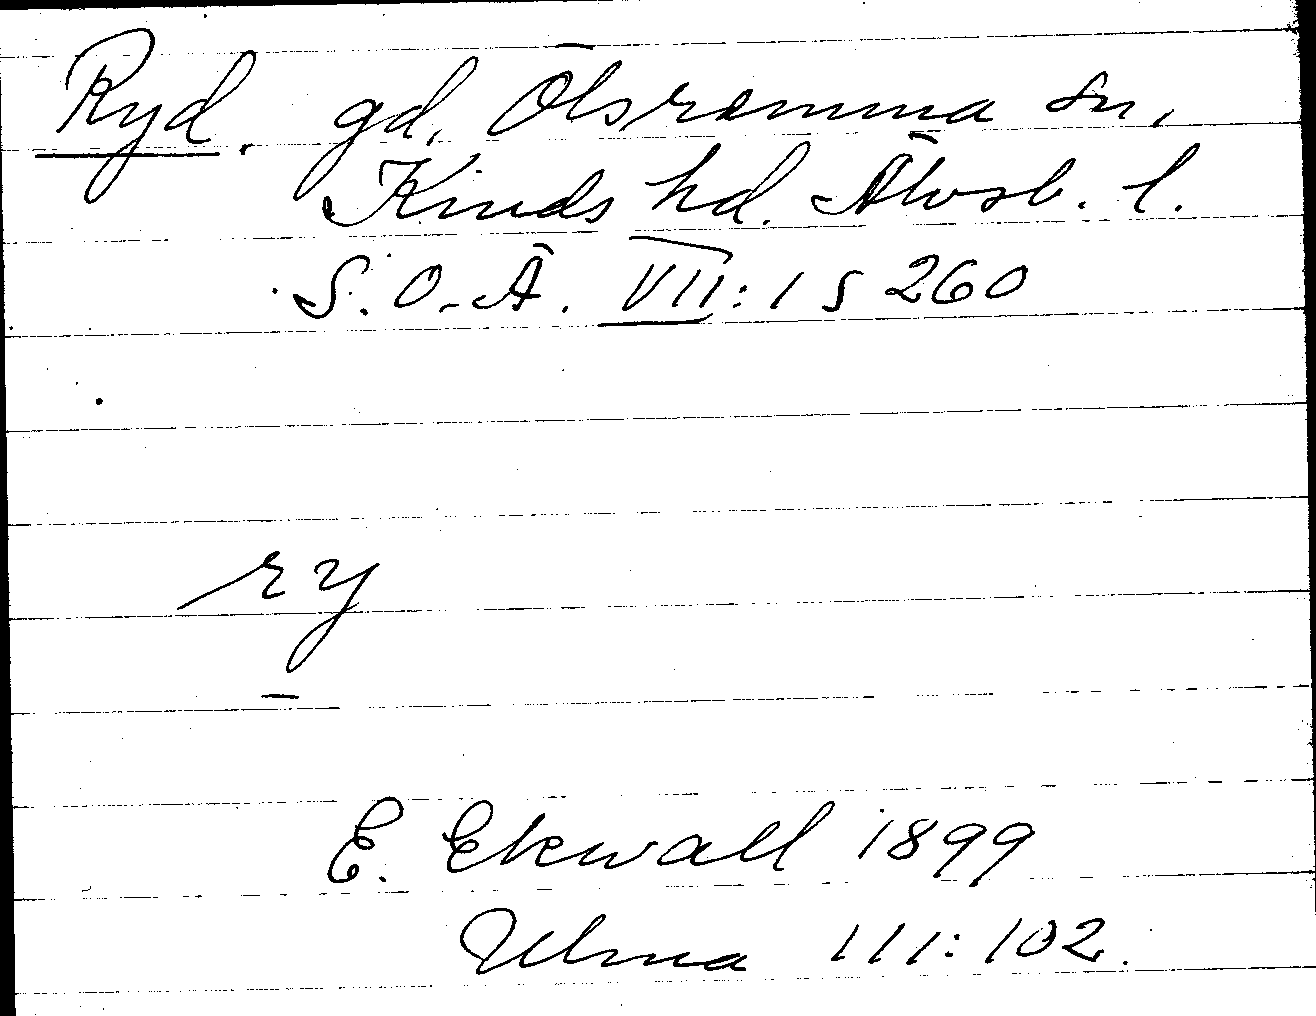 Ryd. gd, Ölsremma sn,
Kinds hd. Älvsb. l.
S.O.Ä. VII:1 s 260
ry
E. Ekwall 1899
Ulma 111:102.